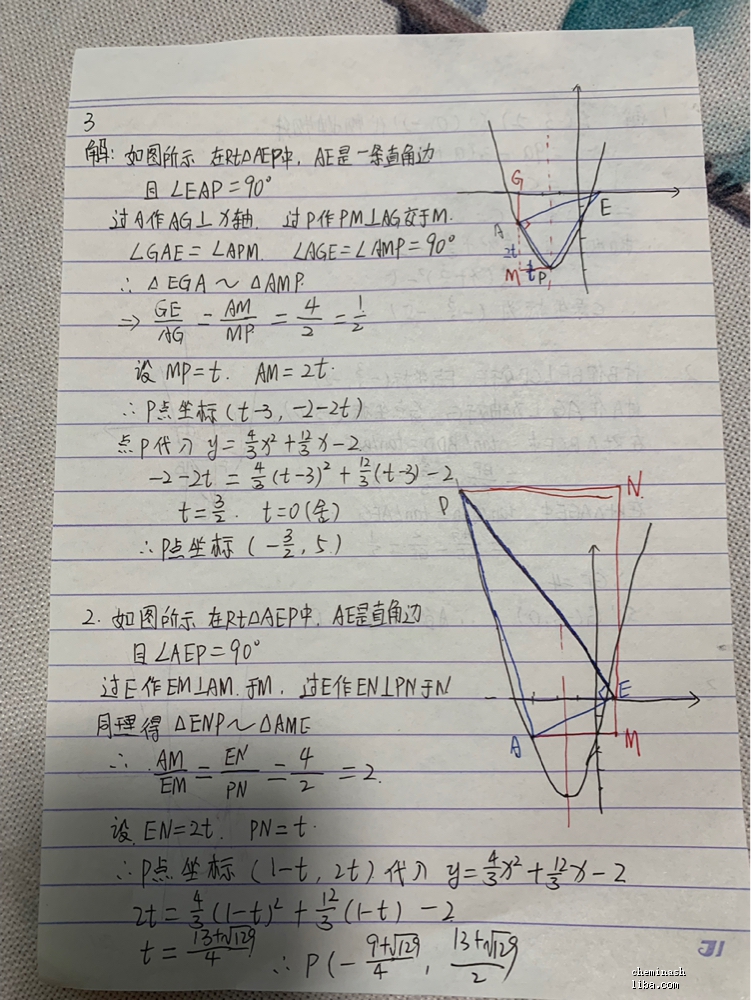 3
解: 如图所示 在Rt△AEP中, AE是一条直角边
且∠EAP=90°
过A作AG⊥X轴. 过P作PM⊥AG交于M.
∠GAE=∠APM. ∠AGE=∠AMP=90°
∴ △EGA∽△AMP.
⇒ GE/AG = AM/MP = 4/2 = 1/2
设 MP=t. AM=2t.
∴P点坐标(t-3, -2-2t)
点P代入 y=4/3x²+12/3x-2.
-2-2t=4/3(t-3)²+12/3(t-3)-2
t=3/2. t=0(舍)
∴P点坐标(-3/2, 5)
G
A
E
2t
M
t
P
2. 如图所示 在Rt△AEP中, AE是直角边
且∠AEP=90°
过E作EM⊥AM.于M, 过E作EN⊥PN于N
同理得 △ENP∽△AME
∴ AM/EM = EN/PN = 4/2 = 2.
设 EN=2t. PN=t.
∴P点坐标(1-t, 2t)代入 y=4/3x²+12/3x-2
2t=4/3(1-t)²+12/3(1-t)-2
t=13+√129/4
∴ P(-9+√129/4, 13+√129/2)
P
N
E
A
M
cheminash
liba.com